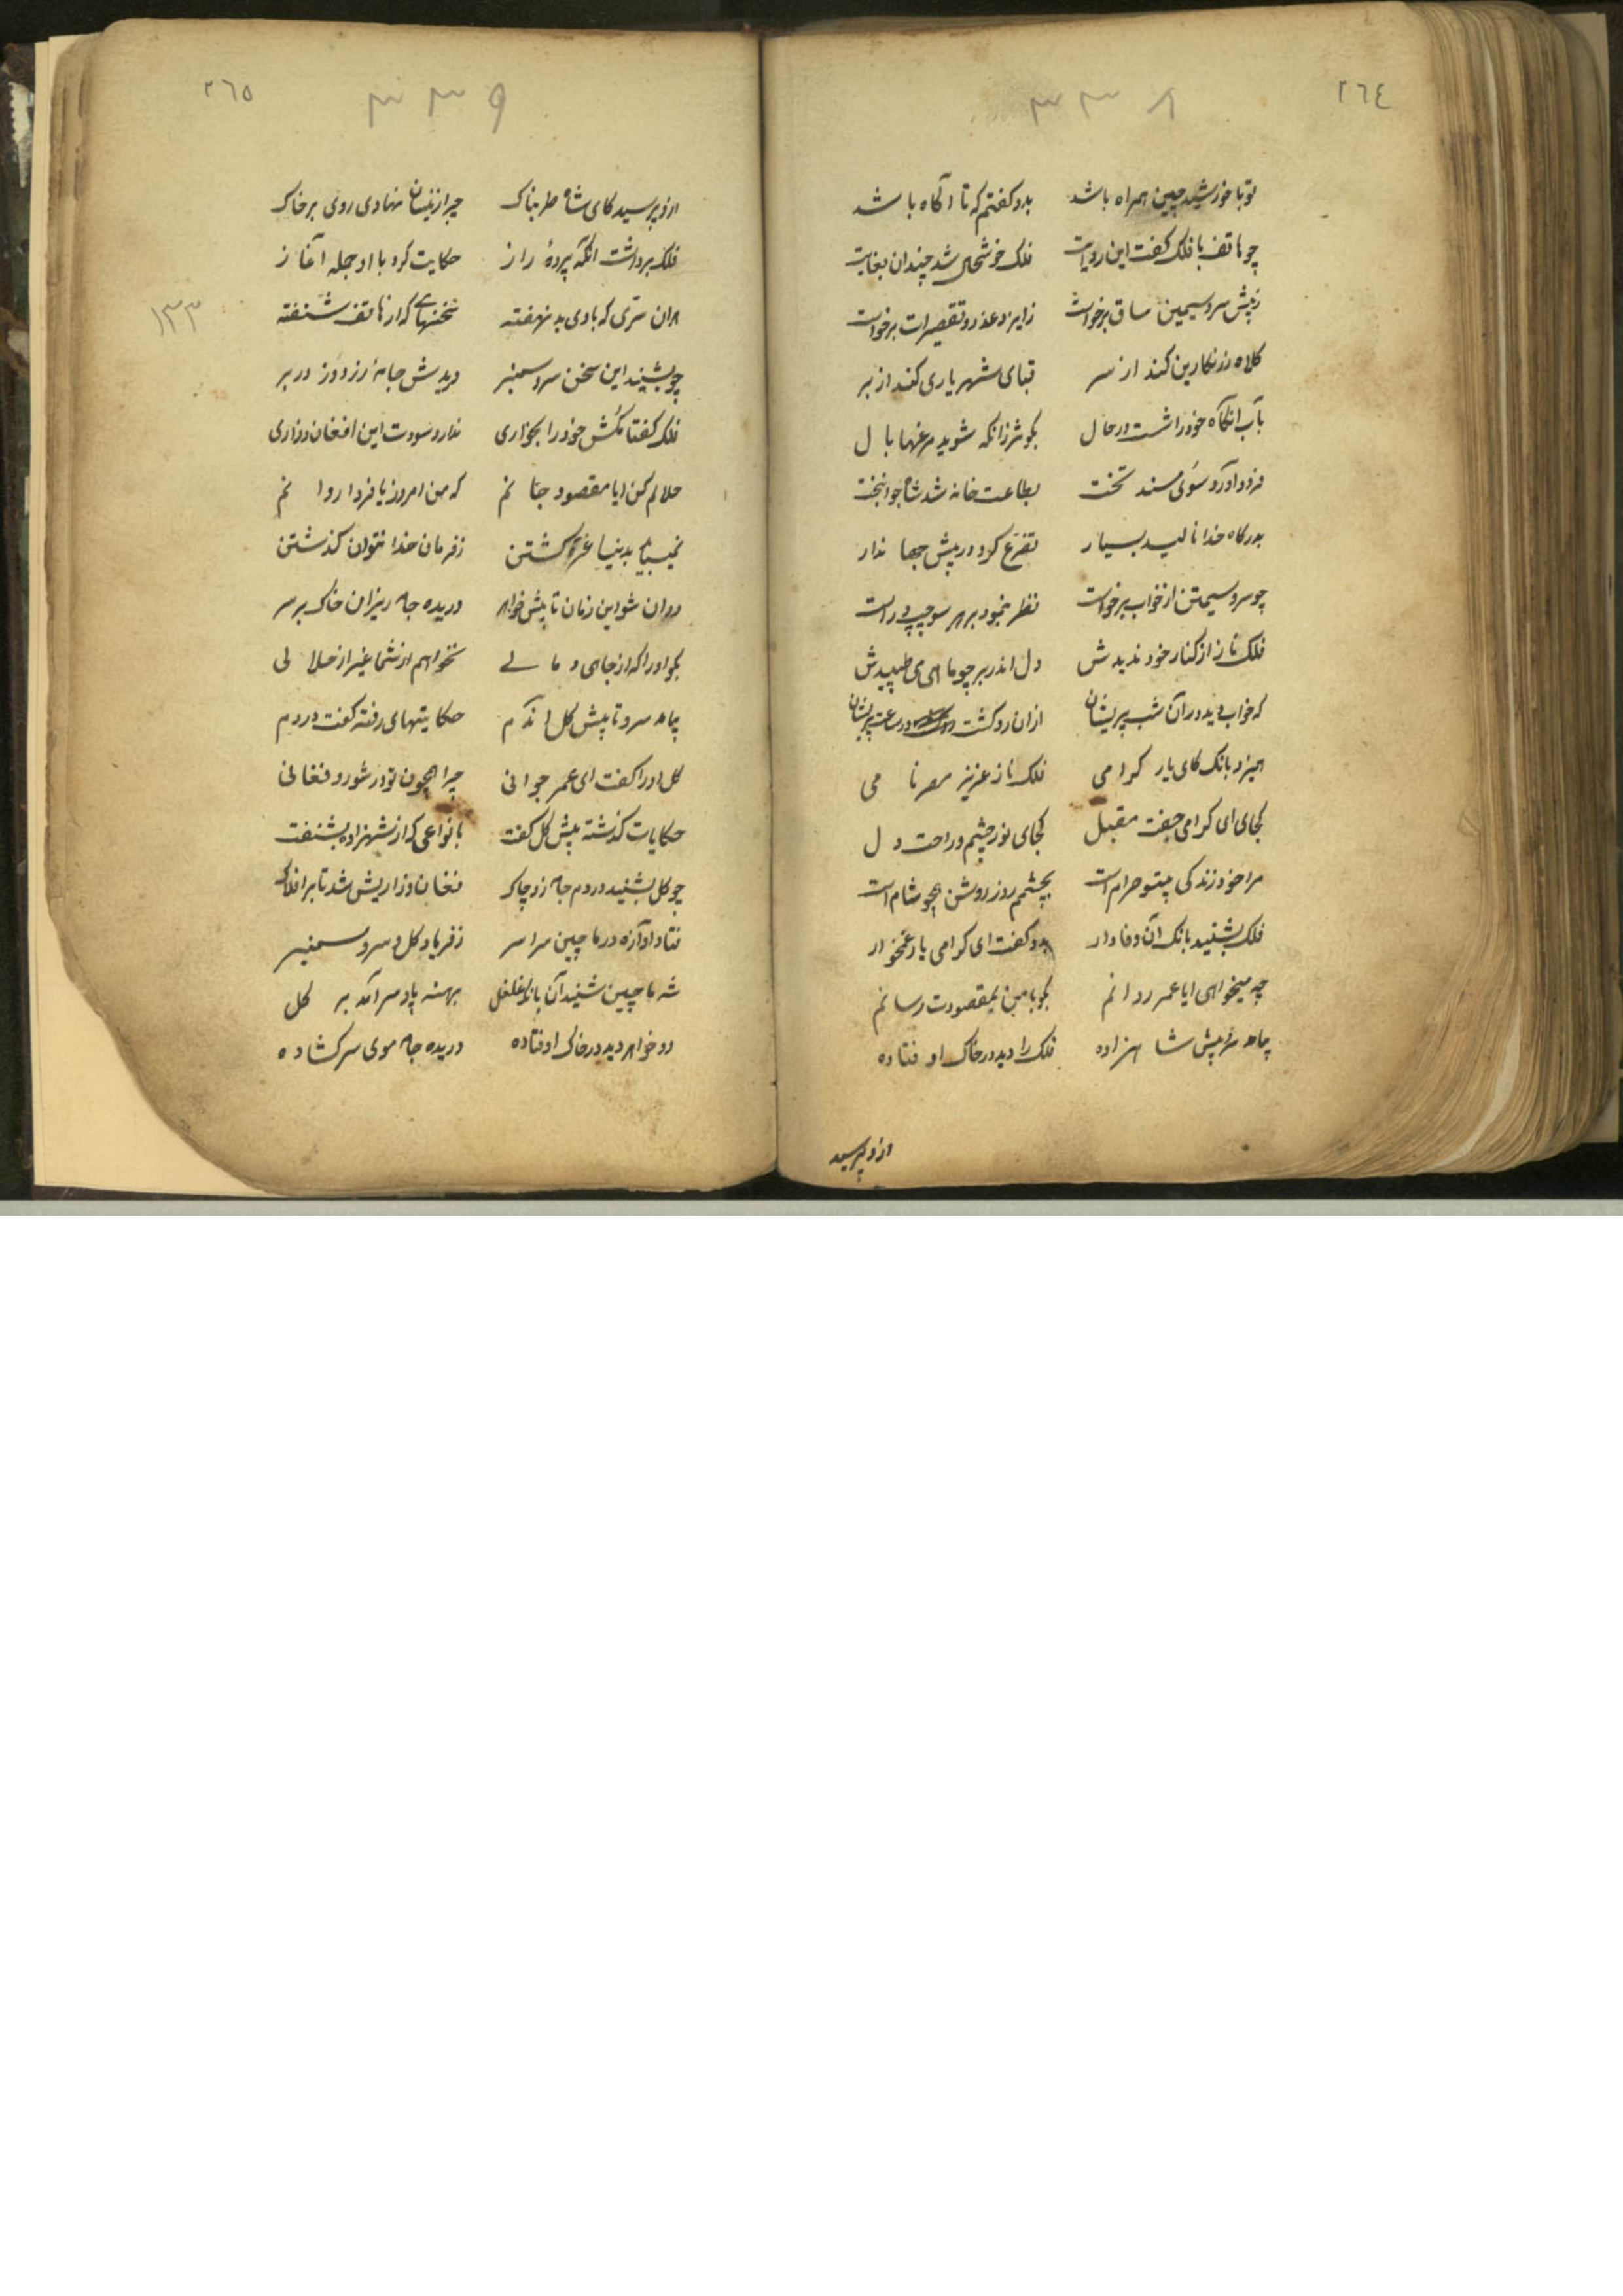 ٢٦٤
٣٣٨
تو با خورشید چین همراه باشد بدو کفتم که تا آکاه باشد
چو هاتف با فلک کفت این روایت فلک خوشحال شد چندان بغایت
ز پیش سرو سیمین ساق برخواست ز ایزد عذر و تقصیرات برخواست
کلاه زرنکارین کند از سر قبای شهریاری کند از بر
بآب انکاه خود را شست در حال بکوثر زانکه شوید مرغها بال
فرود آورد سوی مسند تخت بطاعت خانه شد شاه جوانبخت
بدرکاه خدا نالید بسیار تضرع کرد در پیش جهاندار
چو سرو سیمتن از خواب برخواست نظر بنمود بر هر سو چپ و راست
فلک ناز از کنار خود ندیدش دل اندر بر چو ماهی می طپیدش
که خواب دید در آن شب پریشان ازان رو کشت در ساعت پریشان
همیزد بانک کای یار کرامی فلک ناز عزیز مصر نامی
کجای ای کرامی جفت مقبل کجای نور چشم و راحت دل
مرا خود زندکی بیتو حرام است بچشمم روز روشن همچو شام است
فلک بشنید بانک آن وفادار بدو کفت ای کرامی یار غمخوار
چه میخواهی ایا عمر روانم بکو با من بمقصودت رسانم
بیامد پیش شاهزاده فلک را دید در خاک اوفتاده
ازو پرسید
٢٦٥
٣٣٩
ازو پرسید کای شاه طربناک چرا زینسان نهادی روی بر خاک
فلک برداشت انکه پردهٔ راز حکایت کرد با او جمله آغاز
هران سری که با وی بد نهفته سخنهای که از هاتف شنفته
١٣٣
چو بشنید این سخن سرو سمنبر دریدش جامهٔ زردوز در بر
فلک کفتا مکش خود را بخواری ندارد سودت این افغان و زاری
حلالم کن ایا مقصود جانم که من امروز یا فردا روانم
نمیباید بدنیا غره کشتن ز فرمان خدا نتوان کذشتن
روان شو این زمان تا پیش خواهر دریده جامه ریزان خاک بر سر
بکو او را که از جاهی و مالی نخواهم از شما غیر از حلالی
بیامد سرو تا پیش کل اندم حکایتهای رفته کفت در دم
کل او را کفت ای عمر جوانی چرا همچون تو در شور و فغانی
حکایات کذشته پیش کل کفت بانواعی که از شهزاده بشنفت
چو کل بشنید در دم جامه زد چاک فغان و زاریش شد تا بر افلاک
فتاد آوازه در ماچین سراسر ز فریاد کل و سرو سمنبر
شه ماچین شنید آن بانک غلغل بهنه پا و سر آمد بر کل
دو خواهر دید در خاک اوفتاده دریده جامه موی سر کشاده